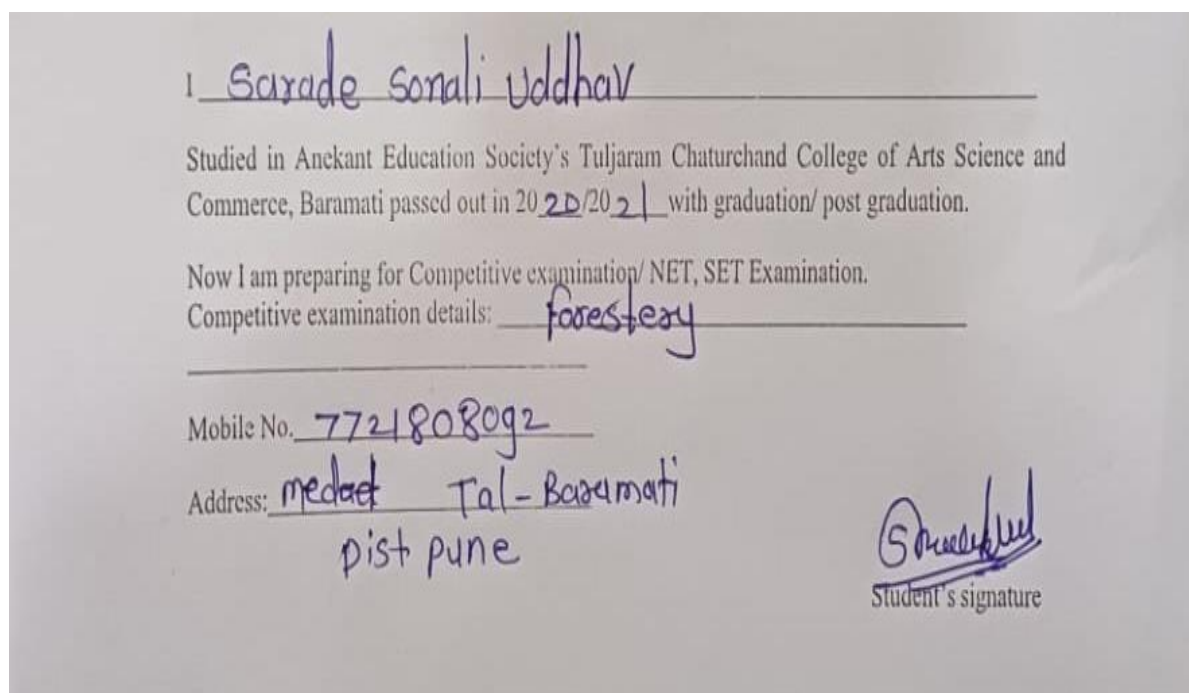 I Sarade Sonali Uddhav
Studied in Anekant Education Society's Tuljaram Chaturchand College of Arts Science and
Commerce, Baramati passed out in 2020/2021 with graduation/ post graduation.
Now I am preparing for Competitive examination/ NET, SET Examination.
Competitive examination details: forestery
Mobile No. 7721808092
Address: medad Tal-Baramati
Dist pune
Student's signature